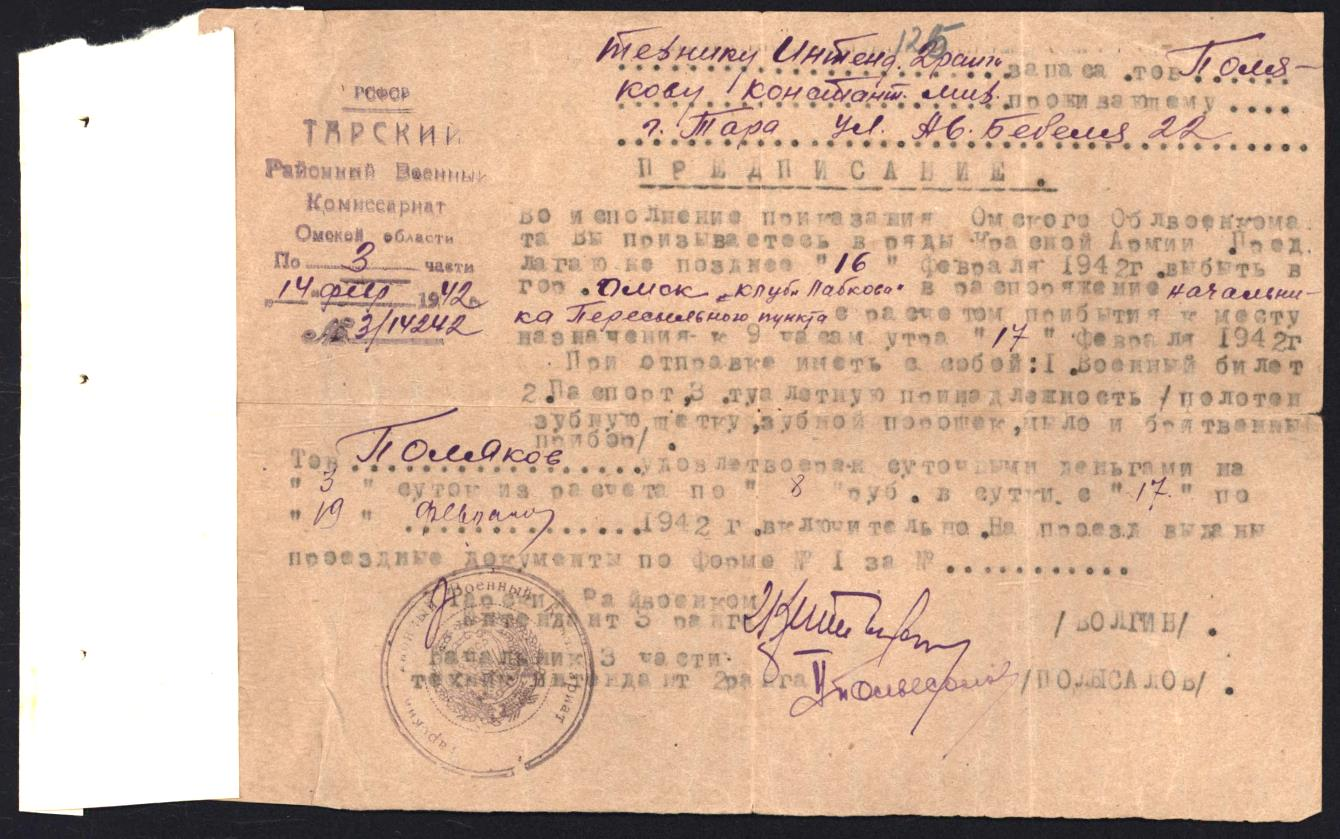 125
технику Интенд. 2 ранга запаса тов Поля-
кову констант. Мих. проживающему
г. Тара ул. Ав. Бебеля 22
РСФСР
ТАРСКИЙ
Районный Военный
Комиссариат
Омской области
По 3 части
"14" фев 1942г
№ 3/14242
ПРЕДПИСАНИЕ.
Во исполнение приказания Омского Облвоенкома
та Вы призываетесь в ряды Красной Армии Пред
лагаю не позднее "16" февраля 1942г. выбыть в
гор. Омск "клуб в распоряжение начальни-
ка Пересыльного пункта с расчетом прибытия к месту
назначения к 9 часам утра "17" февраля 1942г
При отправке иметь с собой: I. Военный билет
2. Паспорт, 3. туалетную принадлежность /полотен
зубную щетку, зубной порошек, мыло и бритвенный
прибор/.
Тов. Поляков удовлетворен суточными деньгами на
"3" суток из расчета по "8" руб. в сутки с "17." по
"19" февраля 1942 г. включительно. На проезд выданы
проездные документы по форме № I за №
Тарский Райвоенком
интендант 3 ранга /ВОЛГИН/.
Начальник 3 части
техник Интендант 2 ранга /ПОЛЫСАЛОВ/.
Тарский Районный Военный Комиссариат